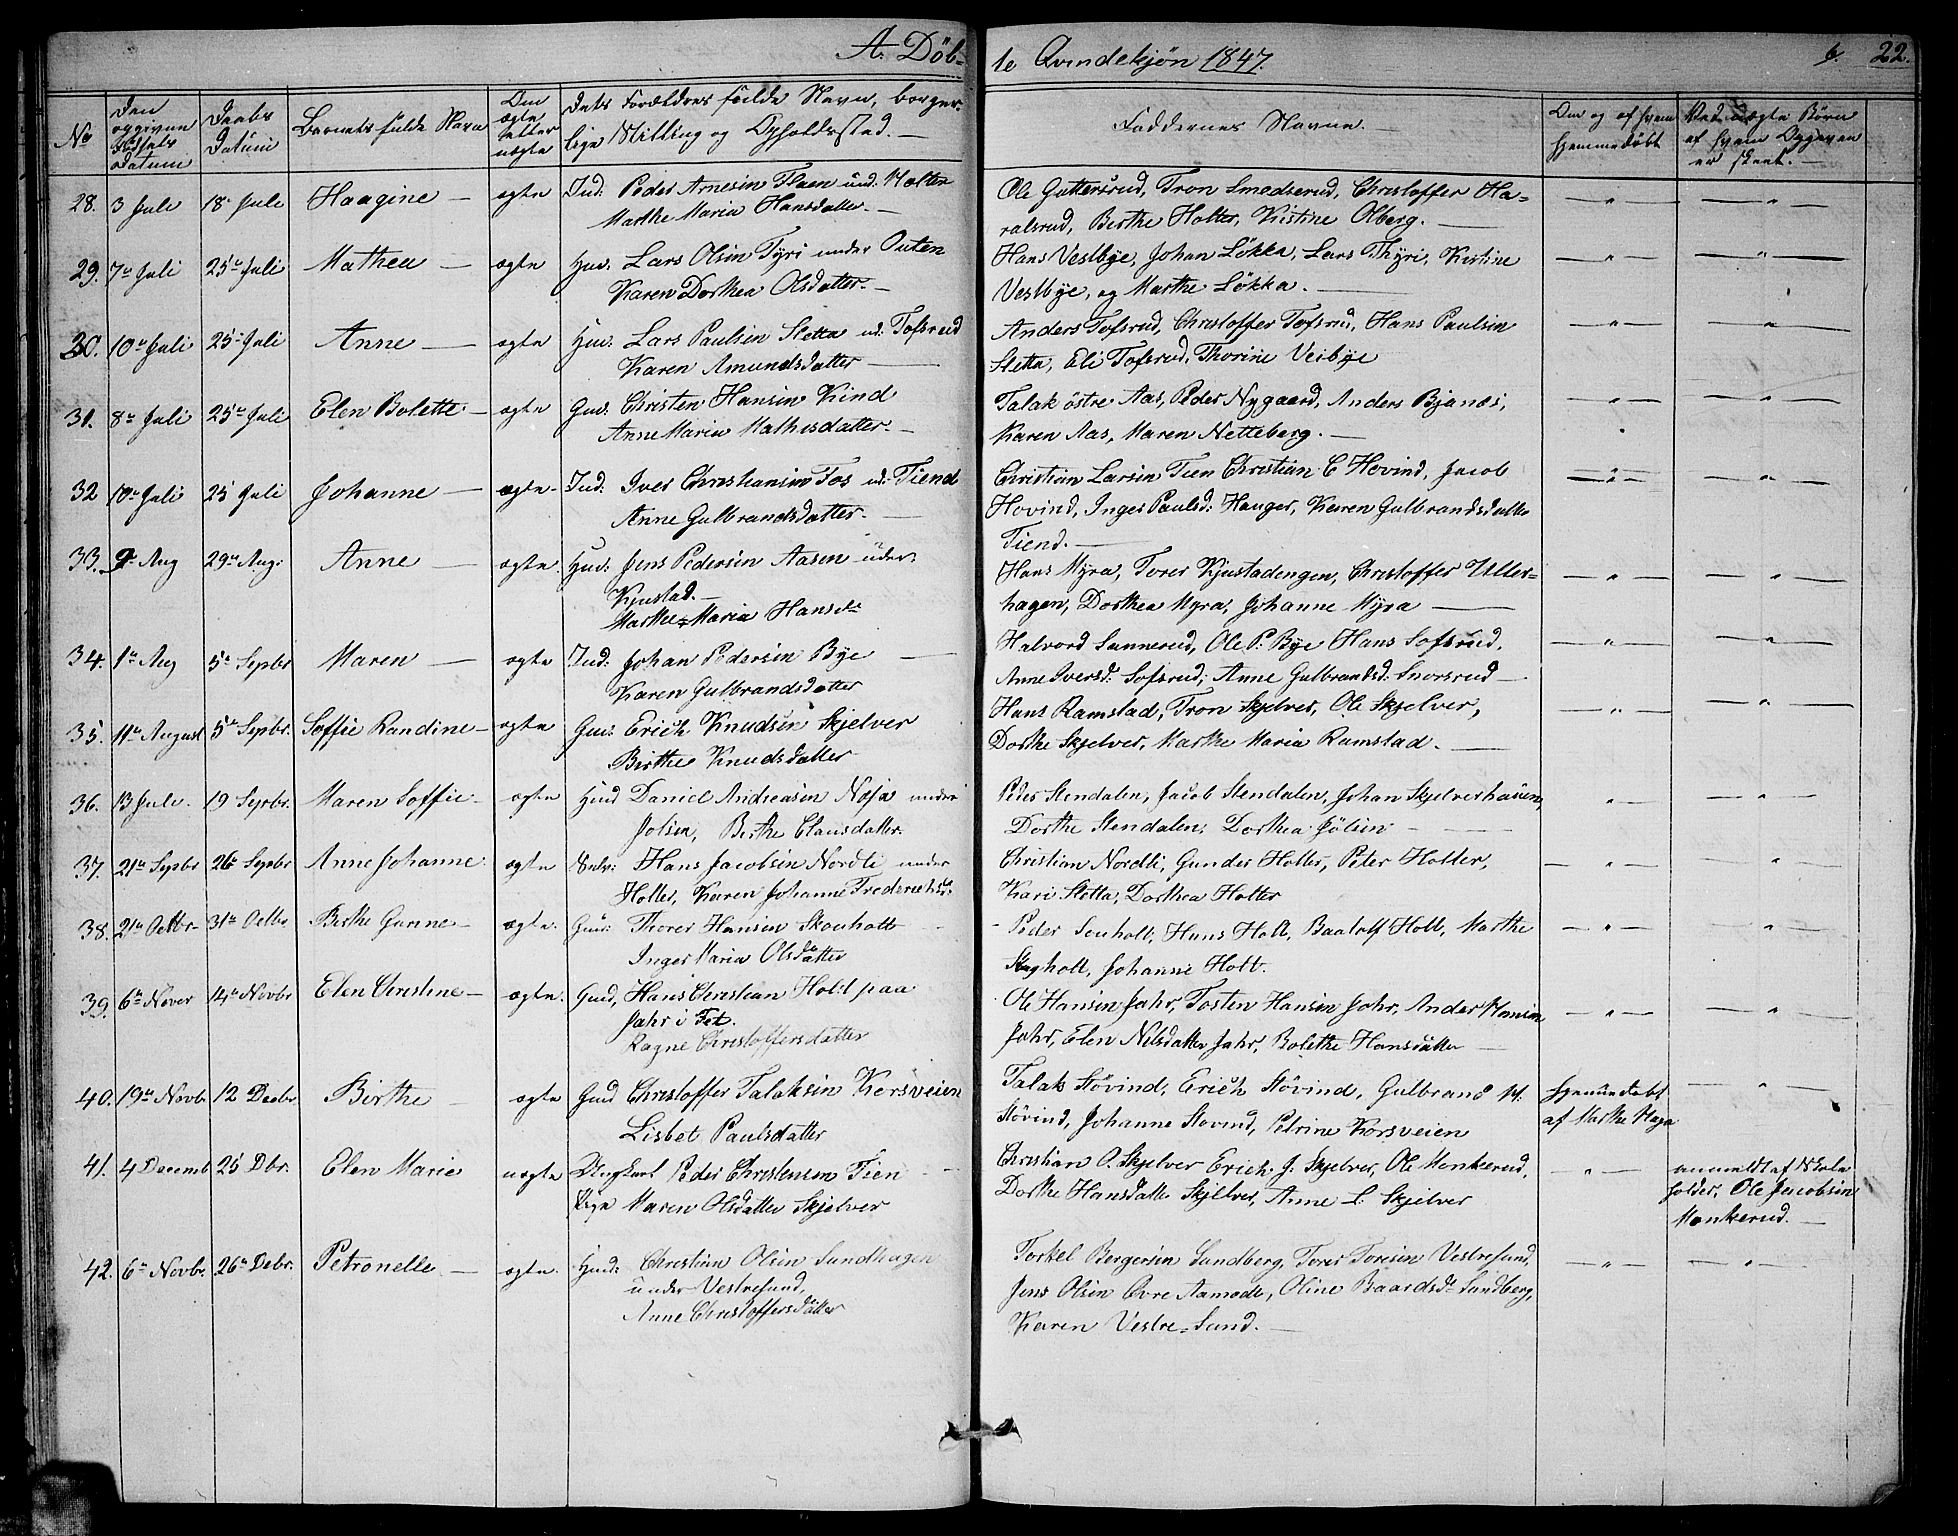 A. Döb-
te Qvindekjön 1847.
6. 22.
No
Den opgivne Födsels datum
Daabs Datum
Barnets fulde Navn
Om ægte eller uægte
Dets Forældres fulde Navn, borger-
lige Stilling og Opholdssted. —
Faddernes Navne. —
Om og af hvem hjemmedöbt
Ved uægte Börn af hvem Opgaven er skeet. —
28. 3 Juli 18 Juli Haagine — ægte Ind: Peder Arnesen und:
Marthe Maria Hansdatter. —
Ole Guttersrud, Tron Smedserud, Christoffer Ha-
ralsrud, Birthe Holter, Kistine Olberg. —
29. 7de Juli 25de Juli Mathea — ægte Huu: Lars Olsen Tyri under Outen
Karen Dorthea Olsdatter. —
Hans Vestbye, Johan Lökka, Lars Thyri, Kistine
Vestbye, og Marthe Lökka. —
30. 10de Juli 25de Juli Anne — ægte Huu: Lars Paulsen Sletta ud: Tofsrud
Karen Amundsdatter —
Anders Tofsrud, Christoffer Tofsrud, Hans Paulsen
Sletta, Eli Tofsrud, Thorine Veibye
31. 8de Juli 25de Juli Elen Bolette — ægte Gud: Christen Hansen Kind
Anne Maria Mathisdatter —
Talak östre Aas, Peder Nygaard, Anders Bjanæs,
Karen Aas, Maren Netteberg. —
32 10de Juli 25 Juli Johanne — ægte Ind: Iver Christiansen Fos ud: Tiend
Anne Gulbrandsdatter. —
Christian Larsen Tien Christian C Hovind, Jacob
Hovind, Inger Paulsd: Hauger, Karen Gulbrandsdatter
Tiend. —
33. 9de Aug 29de Aug: Anne — ægte Huu: Jens Pedersen Aasen under
Kjustad. —
Marthe Maria Hansdr
Hans Myra, Torer Kjustadengen, Christoffer Uller-
hagen, Dorthea Myra, Johanne Myra —
34. 1de Aug 5te Sepbr Maren — ægte Ind: Johan Pedersen Bye —
Karen Gulbrandsdatter
Halvord Sannerud, Ole P: Bye Hans Sofsrud,
Anne Iversd: Sofsrud, Anne Gulbrandsd: Snorsrud —
35. 11te August 5te Sepbr. Soffie Randine — ægte Gud: Erich Knudsen Skjelver
Birthe Knudsdatter
Hans Ramstad, Tron Skjelver, Ole Skjelver,
Dorthe Skjelver, Marthe Maria Ramstad. —
36. 13 Juli. 19 Sepbr. Maren Soffie — ægte Huud Daniel Andreasen Nøsa under
Jolsen, Birthe Clausdatter.
Peder Stendalen, Jacob Stendalen, Johan Skjelverhauen,
Dorthe Stendalen, Dorthea Jölsen —
37. 21de Sepbr 26de Sepbr Anne Johanne ægte Hans Jacobsen Nordli under
Holter, Karen Johanne Frederichsd:
Christian Nordli, Gunder Holter, Peter Holter,
Kari Sletta, Dorthea Holter
38. 21de Octbr 31de Octbr Birthe Gunne — ægte. Gaud: Thorer Hansen Skouholt
Inger Maria Olsdatter
Peder Souholt, Hans Holt, Baalolf Holt, Marthe
Skugholt, Johanne Holt.
39. 6te Nover 14de Novbr Elen Christine — ægte. Gaud, Hans Christian Hold paa
Jahr i Fet.
Ragne Christoffersdatter
Ole Hansen Jahr, Tosten Hansen Jahr, Ander Hansen
Jahr, Elen Nilsdatter Jahr, Bolethe Hansdatter —
40. 19de Novbr 12 Decbr. Birthe — ægte Gaud Christoffer Talaksen Korsveien
Lisbet Paulsdatter
Talak Stövind, Erich Stövind, Gulbrand M.
Stövind, Johanne Stovind, Petrine Korsveien
Hjemmedøbt
af Marthe Haga
41. 4 Decemb 25 Dbr. Elen Marie uægte Ungkarl Peder Christensen Tien —
Pige Maren Olsdatter Skjelver
Christian O. Skjelver Erich J. Skjelver, Ole Monkerud,
Dorthe Hansdatter Skjelver, Anne L: Skjelver
anmeldt af Skole
holder, Ole Jacobsen
Monkerud. —
42. 6te Novbr. 26de Debr. Petronelle — ægte. Huud: Christian Olsen Sundhagen
under Vestresund,
Anne Christoffersdatter
Torkel Bergersen Sundberg, Torer Toresen Vestresund,
Jens Olsen Övre Aamodt, Oline Baardsdr Sundberg,
Karen Vestre-Sund. —